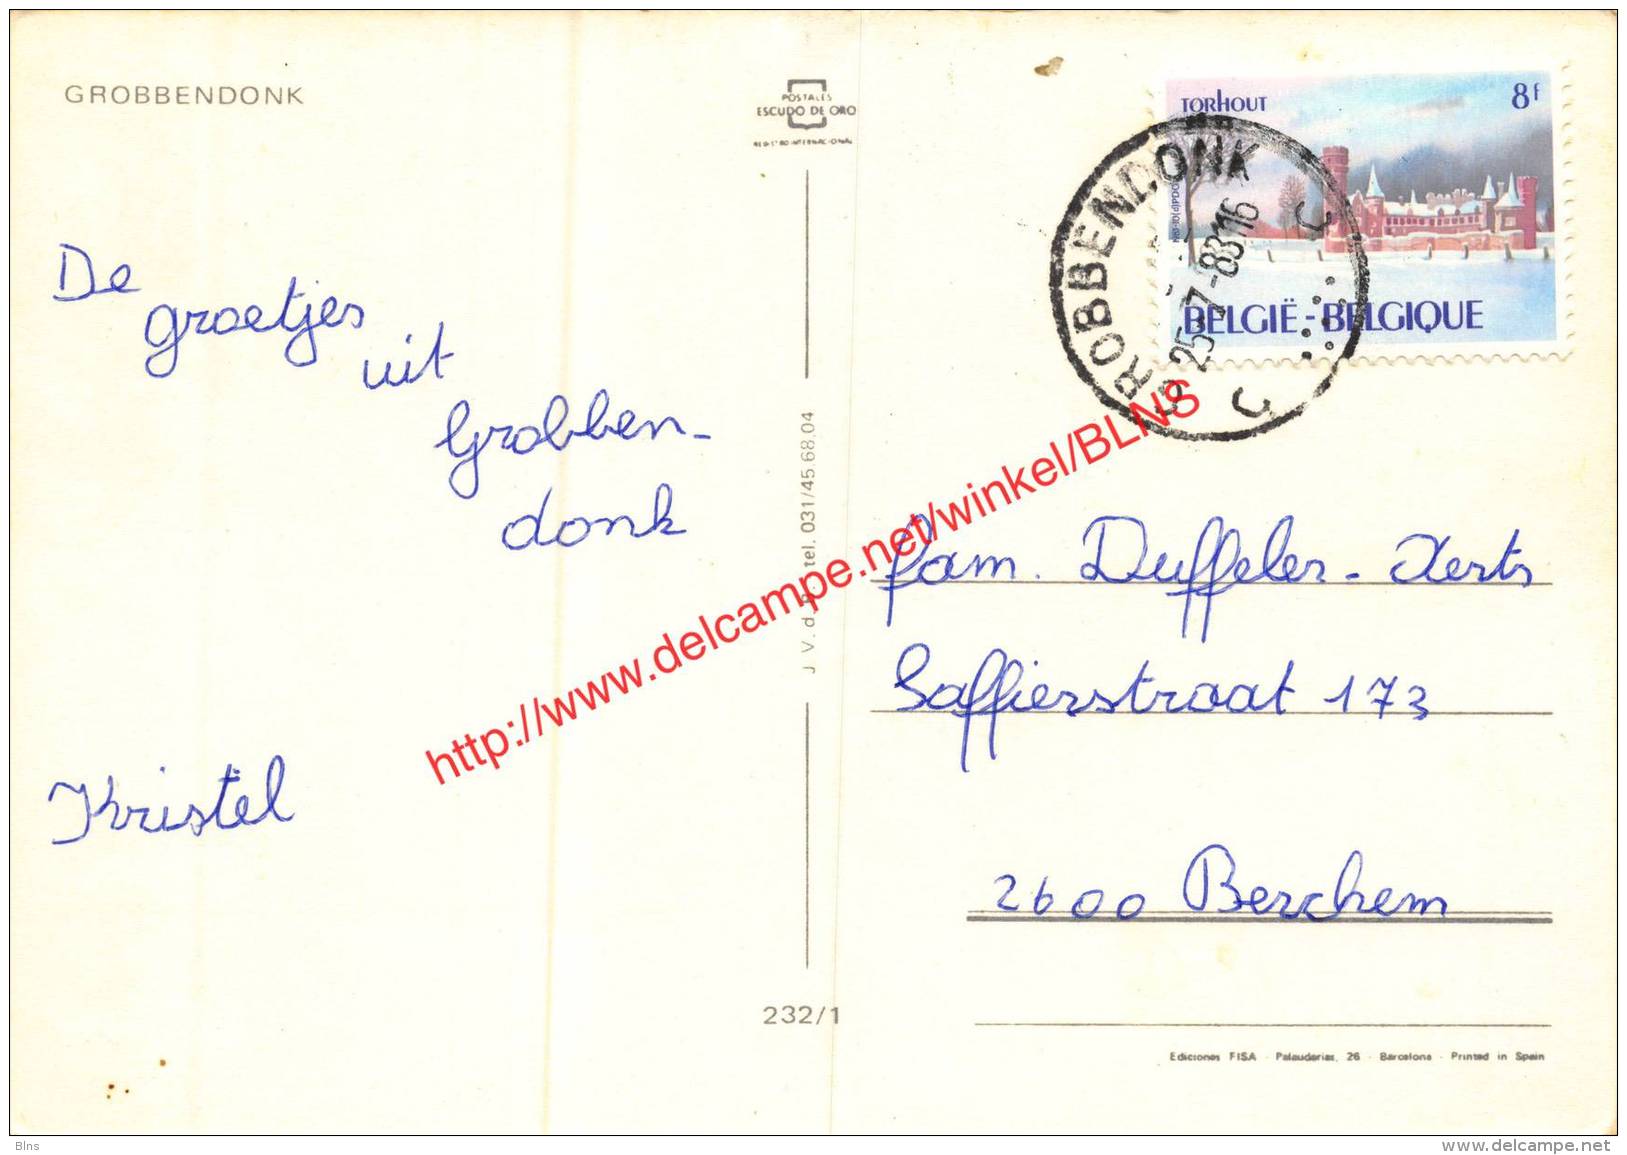 GROBBENDONK
POSTALES
ESCUDO DE ORO
TORHOUT
8f
GROBBENDONK
25-7-83 16
C
C
BELGIË-BELGIQUE
De
groetjes
uit
Grobben-
donk
Kristel
J. V. d. B. tel. 031/45.68.04
fam. Duffeler-Aerts
Saffierstraat 173
2600 Berchem
232/1
Ediciones FISA - Palaudarias, 26 - Barcelona - Printed in Spain
http://www.delcampe.net/winkel/BLNS
Blns
www.delcampe.net